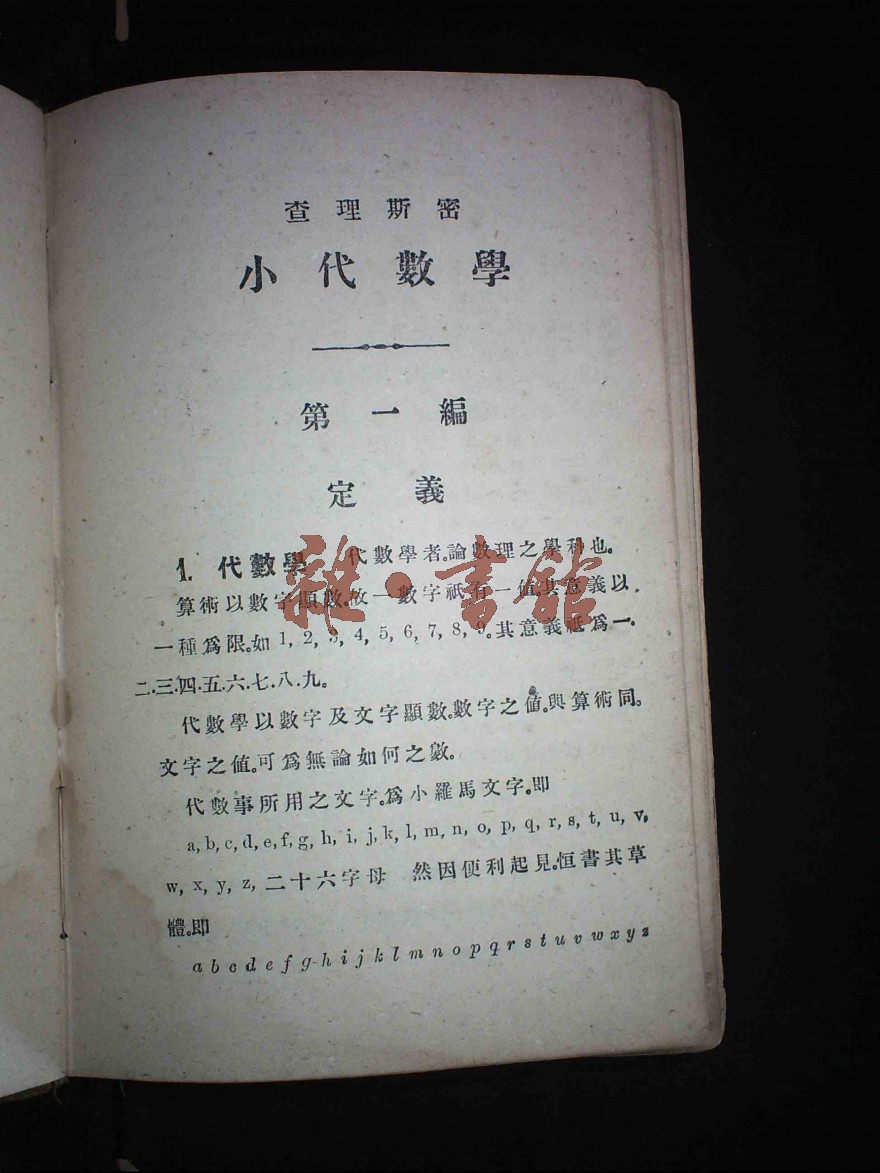 查理斯密
小代數學
第一編
定義
1. 代數學 代數學者。論數理之學科也。
算術以數字顯數。故一數字祇有一值。其意義以
一種爲限。如 1, 2, 3, 4, 5, 6, 7, 8, 9。其意義祇爲一.
二.三.四.五.六.七.八.九。
代數學以數字及文字顯數。數字之值。與算術同。
文字之值。可爲無論如何之數。
代數事所用之文字。爲小羅馬文字。即
a, b, c, d, e, f, g, h, i, j, k, l, m, n, o, p, q, r, s, t, u, v,
w, x, y, z, 二十六字母 然因便利起見。恒書其草
體。即
a b c d e f g h i j k l m n o p q r s t u v w x y z
雜·書館